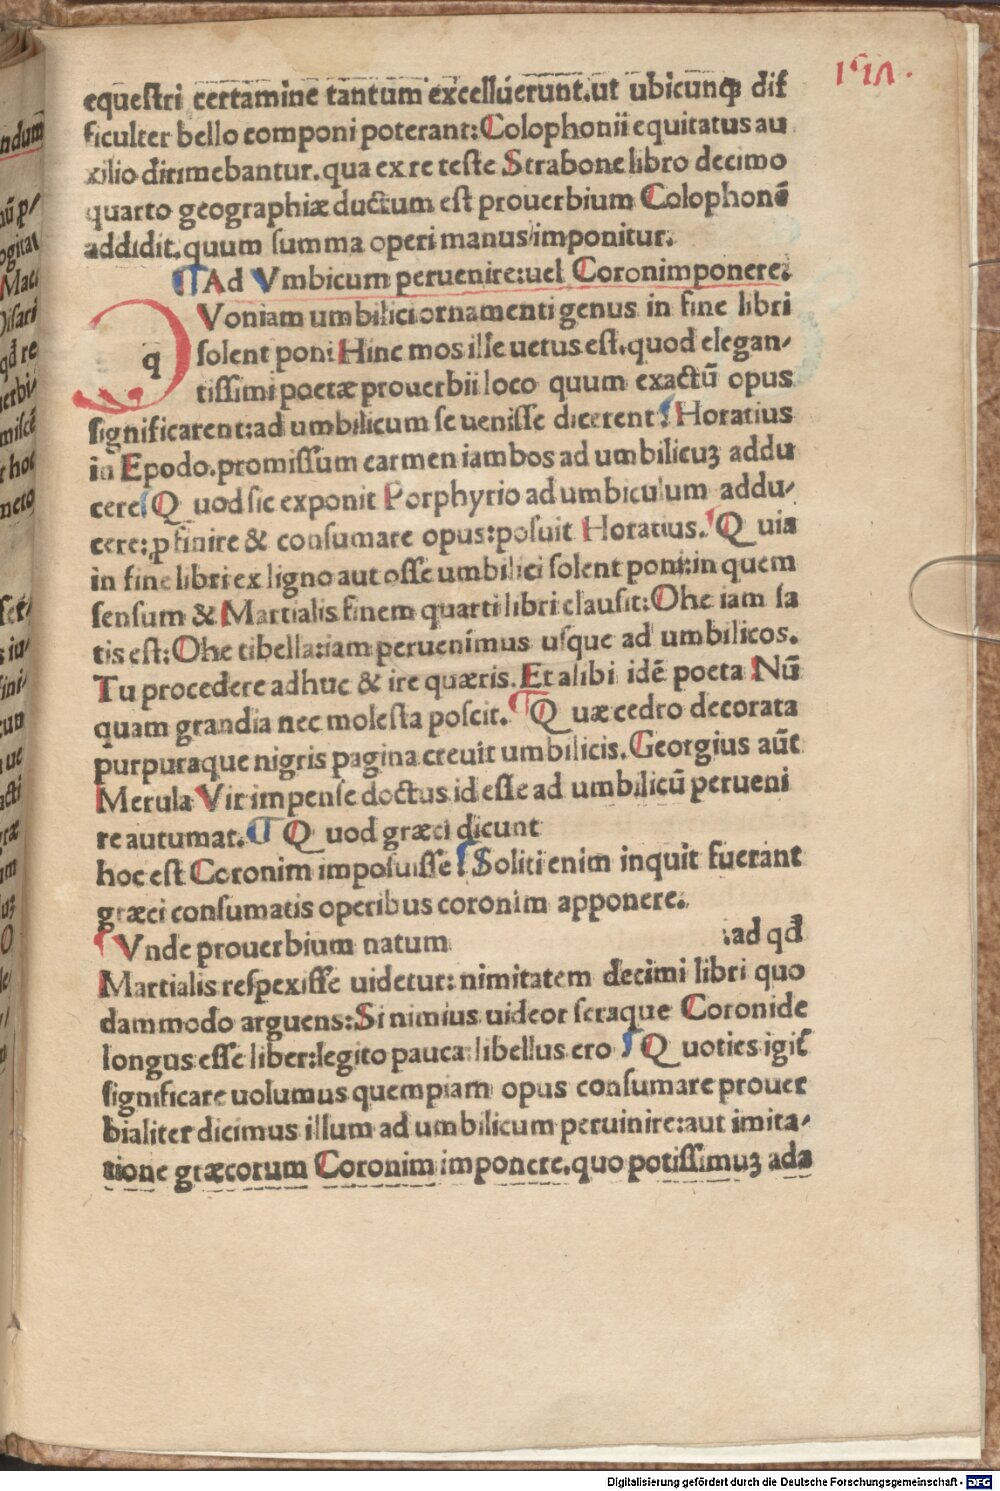 equeſtri certamine tantum excelluerunt.ut ubicunqꝫ dif
ficulter bello componi poterant:Colophonii equitatus au
xilio dirimebantur.qua ex re teſte Strabone libro decimo
quarto geographiæ ductum eſt prouerbium Colophonē
addidit.quum ſumma operi manus imponitur.
¶Ad Vmbicum peruenire:uel Coronimponere.
q Voniam umbilici ornamenti genus in fine libri
ſolent poni Hinc mos ille uetus eſt.quod elegan/
tiſſimi poetæ prouerbii loco quum exactū opus
ſignificarent:ad umbilicum ſe ueniſſe dicerent ¶Horatius
in Epodo.promiſſum carmen iambos ad umbilicuꝫ addu
cere ¶Q uod ſic exponit Porphyrio ad umbiculum addu/
cere:ꝓ finire & conſumare opus:poſuit Horatius. ¶Q uia
in fine libri ex ligno aut oſſe umbilici ſolent poni:in quem
ſenſum & Martialis finem quarti libri clauſit:Ohe iam ſa
tis eſt:Ohe libella:iam peruenimus uſque ad umbilicos.
Tu procedere adhuc & ire quæris.Et alibi idē poeta Nū
quam grandia nec moleſta poſcit. ¶Q uæ cedro decorata
purpuraque nigris pagina creuit umbilicis.Georgius aūt
Merula Vir impenſe doctus id eſſe ad umbilicū perueni
re autumat. ¶Q uod græci dicunt
hoc eſt Coronim impoſuiſſe ¶Soliti enim inquit fuerant
græci conſumatis operibus coronim apponere.
¶Vnde prouerbium natum :ad qđ
Martialis reſpexiſſe uidetur:nimitatem decimi libri quo
dammodo arguens:Si nimius uideor ſeraque Coronide
longus eſſe liber:legito pauca:libellus ero ¶Q uoties igit̄
ſignificare uolumus quempiam opus conſumare prouer
bialiter dicimus illum ad umbilicum peruinire:aut imita/
tione græcorum Coronim imponere.quo potiſſimuꝫ ada
Digitalisierung gefördert durch die Deutsche Forschungsgemeinschaft - DFG